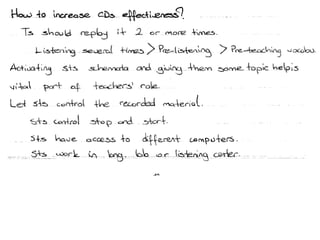 How to increase CDs effectiveness?
Ts should replay it 2 or more times.
Listening several times > Pre-listening > Pre-teaching vocabu
Activating sts schemata and giving them some topic helpis
vital part of teachers' role.
Let sts control the recorded material.
Sts control stop and start.
Sts have access to different computers.
Sts work in lang. lab or listening center.